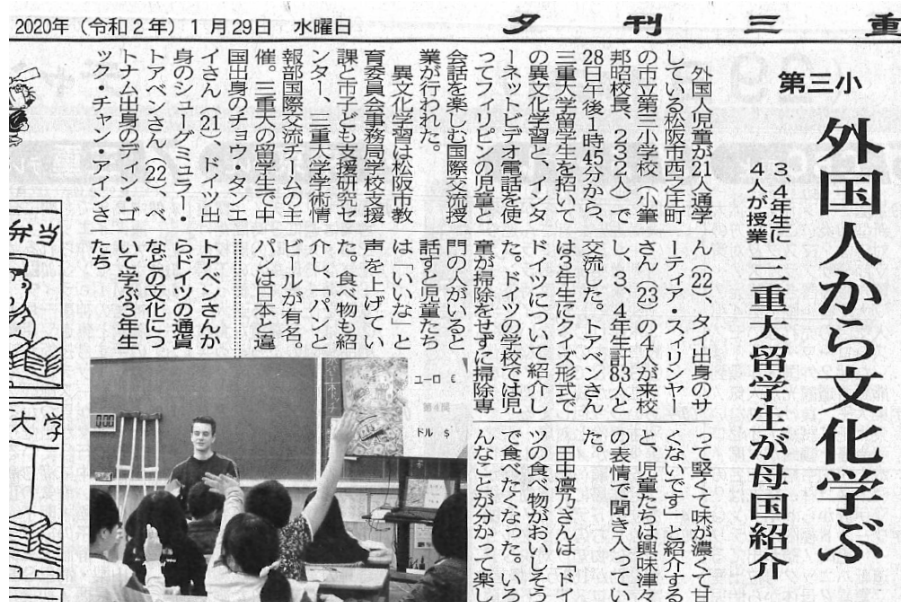 2020年（令和2年）1月29日 水曜日
夕刊三重
第三小
外国人から文化学ぶ
3、4年生に
4人が授業
三重大留学生が母国紹介
外国人児童が21人通学
している松阪市西之庄町
の市立第三小学校（小筆
邦昭校長、232人）で
28日午後1時45分から、
三重大学留学生を招いて
の異文化学習と、インタ
ーネットビデオ電話を使
ってフィリピンの児童と
会話を楽しむ国際交流授
業が行われた。
異文化学習は松阪市教
育委員会事務局学校支援
課と市子ども支援研究セ
ンター、三重大学学術情
報部国際交流チームの主
催。三重大の留学生で中
国出身のチョウ・タンエ
イさん（21）、ドイツ出
身のシューグミュラー・
トアベンさん（22）、ベ
トナム出身のディン・ゴ
ック・チャン・アインさ
ん（22）、タイ出身のサ
ーティア・スィリンヤー
さん（23）の4人が来校
し、3、4年生計83人と
交流した。トアベンさん
は3年生にクイズ形式で
ドイツについて紹介し
た。ドイツの学校では児
童が掃除をせずに掃除専
門の人がいると
話すと児童たち
は「いいな」と
声を上げてい
た。食べ物も紹
介し、「パンと
ビールが有名。
パンは日本と違
って堅くて味が濃くて甘
くないです」と紹介する
と、児童たちは興味津々
の表情で聞き入ってい
た。
田中凛乃さんは「ドイ
ツの食べ物がおいしそう
で食べたくなった。いろ
んなことが分かって楽し
トアベンさんか
らドイツの通貨
などの文化につ
いて学ぶ3年生
たち
ユーロ €
ドル $
弁当
大学